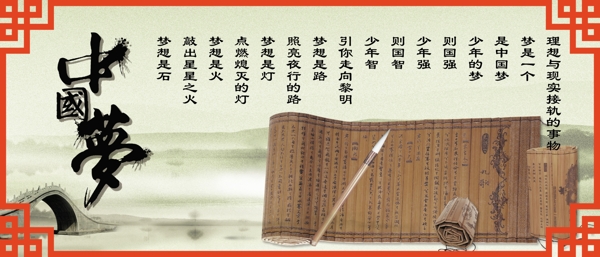 中國夢
理想与现实接轨的事物
梦是一个
是中国梦
少年的梦
则国强
少年强
则国智
少年智
引你走向黎明
梦想是路
照亮夜行的路
梦想是灯
点燃熄灭的灯
梦想是火
敲出星星之火
梦想是石